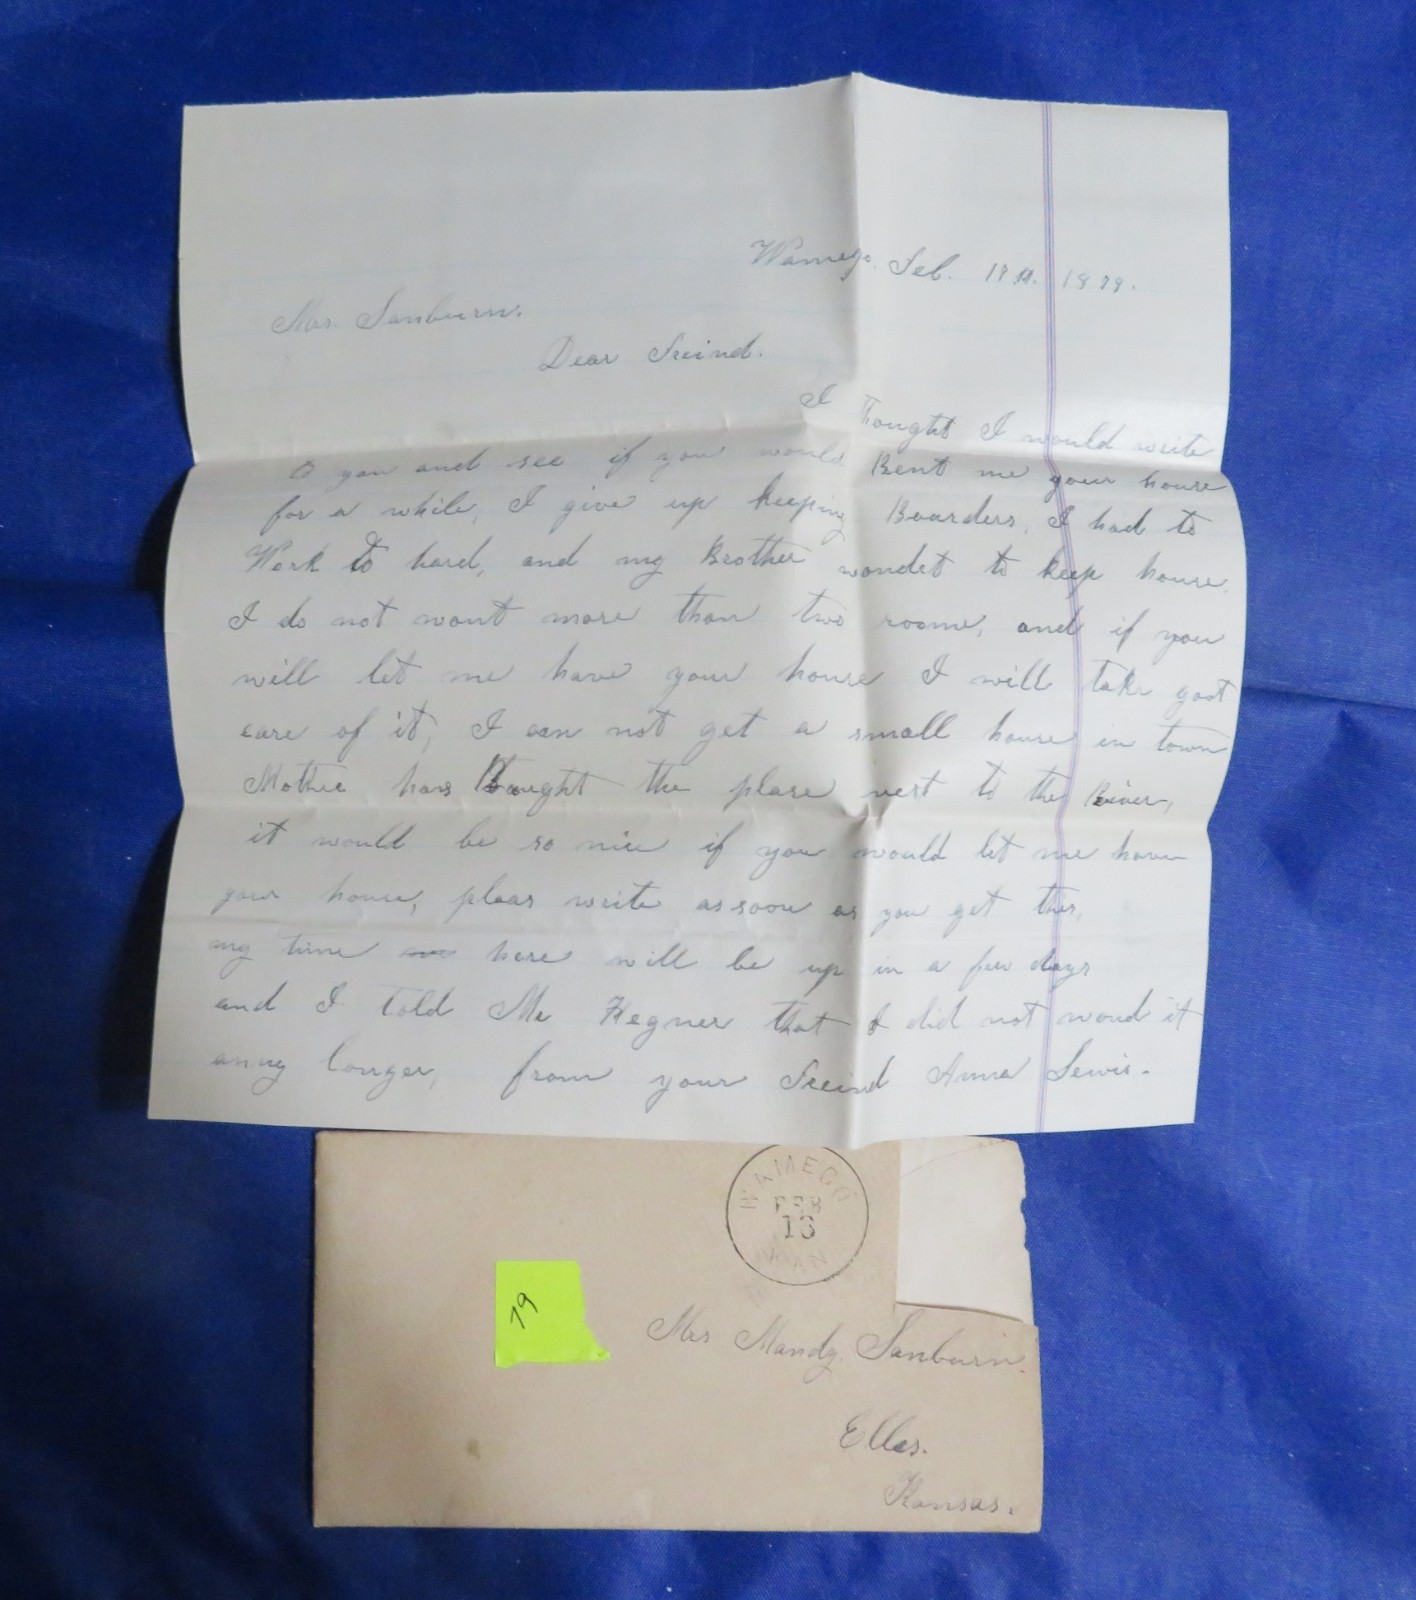 Wamego. Feb. 1879.
Mrs. Sanburn.
Dear Freind.
I thought I would write
to you and see if you would Rent me your house
for a while, I give up keeping Boarders, I had to
Work to hard, and my Brother wondet to keep house.
I do not wont more than two rooms, and if you
will let me have your house I will take goot
care of it, I can not get a small house in town
Mother has Bought the plase next to the River,
it would be so nice if you would let me have
your house, pleas write as soon as you get this,
my time here will be up in a few days
and I told Mr Hegner that I did not wond it
anny longer, from your Freind Anna Lewis.
WAMEGO
FEB
13
KAN
79
Mrs Mandy Sanburn.
Elles.
Kansas.